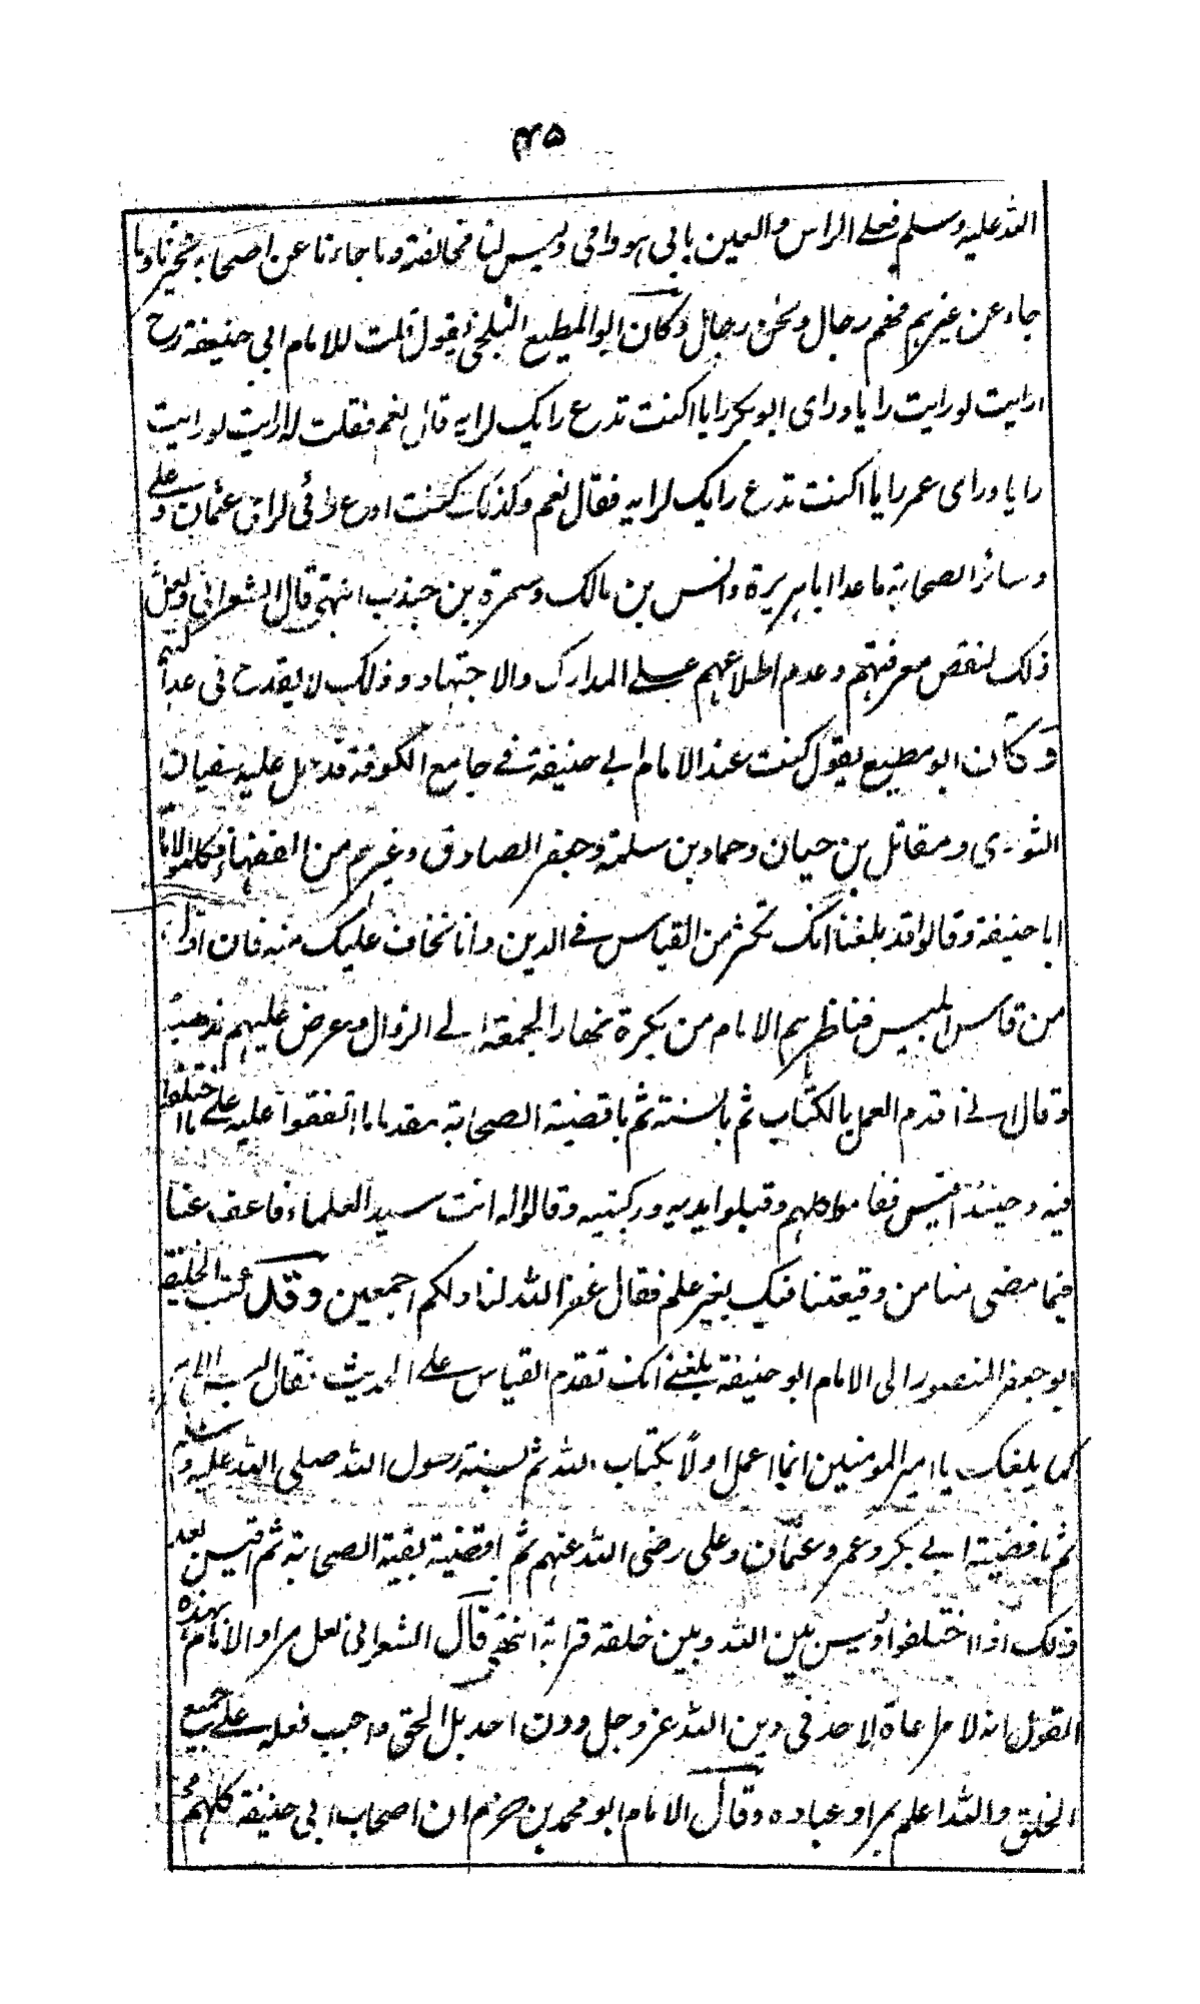 ۴۵
الله عليه وسلم فعلے الراس والعين بابی هو وامی وليس لنا مخالفته وما جاءنا عن اصحابه تخيرنا وما
جاء عن غيرهم فهم رجال ونحن رجال وكان ابو المطيع البلخی يقول قلت للامام ابی حنيفة رح
ارايت لو رايت رايا ورای ابو بكر رايا اكنت تدع رايك لرايه قال نعم فقلت له ارايت لو رايت
رايا ورای عمر رايا اكنت تدع رايك لرايه فقال نعم وكذلك كنت ادع رائی لرای عثمان وعلی
وسائر الصحابة ما عدا ابا هريرة وانس بن مالك وسمرة بن جندب انتهی قال الشعرانی ولعل
ذلك لنقص معرفتهم وعدم اطلاعهم علے المدارك والاجتهاد وذلك لا يقدح فی عدالتهم
وكان ابو مطيع يقول كنت عند الامام ابے حنيفة فے جامع الكوفة فدخل عليه سفيان
الثوری ومقاتل بن حيان وحماد بن سلمة وجعفر الصادق وغيرهم من الفقهاء فكلموا الامام
ابا حنيفة وقالوا قد بلغنا انك تكثر من القياس فے الدين وانا نخاف عليك منه فان اول
من قاس ابليس فناظرهم الامام من بكرة نهار الجمعة الے الزوال وعرض عليهم مذهبه
وقال انے اقدم العمل بالكتاب ثم بالسنة ثم باقضية الصحابة مقدما ما اتفقوا عليه علے ما اختلفوا
فيه وحينئذ اقيس فقاموا كلهم وقبلوا يديه وركبتيه وقالوا له انت سيد العلماء فاعف عنا
فيما مضی منا من وقيعتنا فيك بغير علم فقال غفر الله لنا ولكم اجمعين وقد كتب الخليفة
ابو جعفر المنصور الی الامام ابو حنيفة بلغنے انك تقدم القياس علے الحديث فقال ليس الامر
كما بلغك يا امير المومنين انما اعمل اولاً بكتاب الله ثم بسنة رسول الله صلی الله عليه وسلم
ثم باقضية ابے بكر وعمر وعثمان وعلی رضی الله عنهم ثم باقضية بقية الصحابة ثم اقيس بعد
ذلك اذا اختلفوا وليس بين الله وبين خلقه قرابة انتهی قال الشعرانی لعل مراد الامام بهذه
القول انه لا مراعاة لاحد فی دين الله عز وجل دون احد بل الحق واجب فعله علے جميع
الخلق والله اعلم بمراد عباده وقال الامام ابو محمد بن حزم ان اصحاب ابی حنيفة كلهم